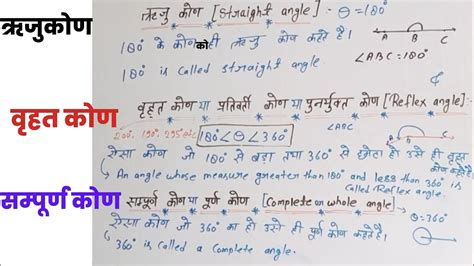 ऋजुकोण
वृहत कोण
सम्पूर्ण कोण
ऋजु कोण [Straight angle] :- θ = 180°
180° के कोण को ही ऋजु कोण कहते है।
A B C
∠ABC = 180°
180° is called straight angle
वृहत कोण या प्रतिवर्ती कोण या पुनर्युक्त कोण [Reflex angle]
∠ABC
200°, 190°, 295° etc. 180°∠θ∠360°
A B C
ऐसा कोण जो 180° से बड़ा तथा 360° से छोटा हो उसे ही वृहत कोण कहते है।
An angle whose measure greater than 180° and less than 360° is called Reflex angle.
सम्पूर्ण कोण या पूर्ण कोण [Complete on whole angle]
θ = 360°
ऐसा कोण जो 360° का हो उसे ही पूर्ण कोण कहते है।
360° is called a complete angle.